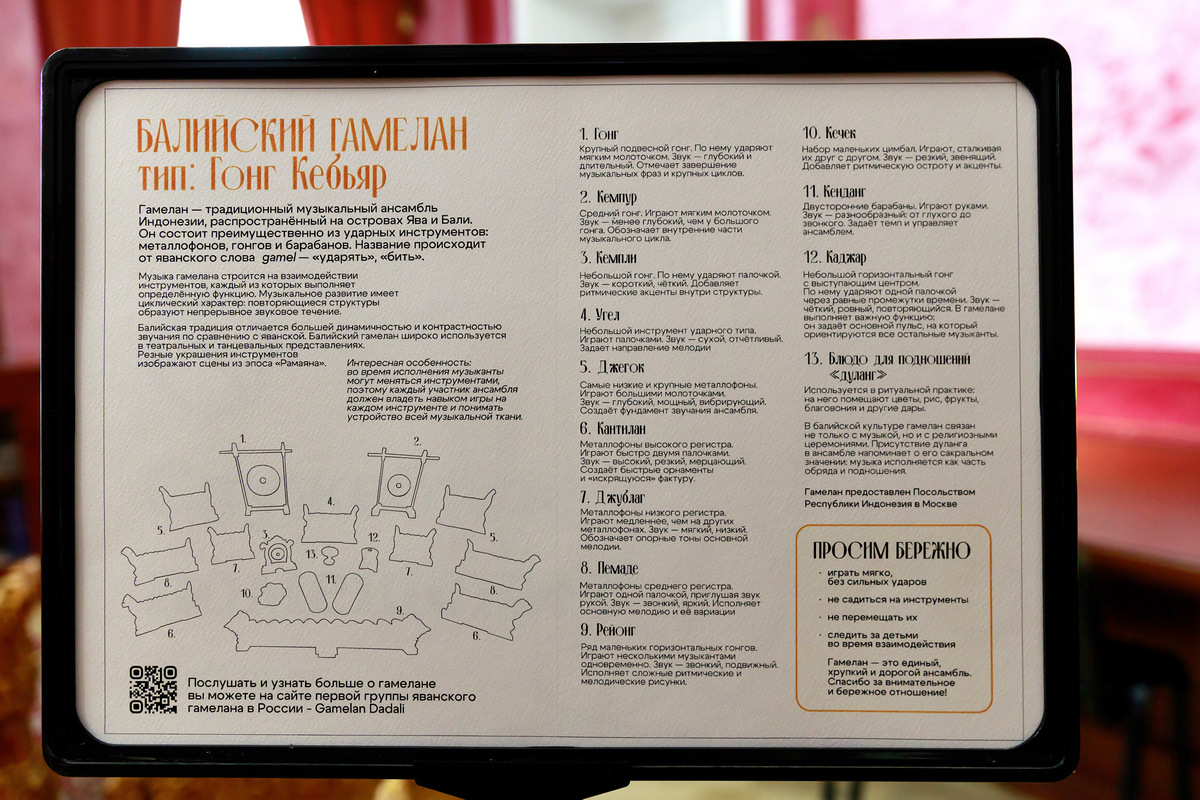 БАЛИЙСКИЙ ГАМЕЛАН
тип: Гонг Кебьяр
Гамелан — традиционный музыкальный ансамбль
Индонезии, распространённый на островах Ява и Бали.
Он состоит преимущественно из ударных инструментов:
металлофонов, гонгов и барабанов. Название происходит
от яванского слова gamel — «ударять», «бить».
Музыка гамелана строится на взаимодействии
инструментов, каждый из которых выполняет
определённую функцию. Музыкальное развитие имеет
циклический характер: повторяющиеся структуры
образуют непрерывное звуковое течение.
Балийская традиция отличается большей динамичностью и контрастностью
звучания по сравнению с яванской. Балийский гамелан широко используется
в театральных и танцевальных представлениях.
Резные украшения инструментов
изображают сцены из эпоса «Рамаяна».
Интересная особенность:
во время исполнения музыканты
могут меняться инструментами,
поэтому каждый участник ансамбля
должен владеть навыком игры на
каждом инструменте и понимать
устройство всей музыкальной ткани.
1.
2.
4.
5.
3.
13.
12.
5.
7.
7.
8.
11.
8.
10.
9.
6.
6.
Послушать и узнать больше о гамелане
вы можете на сайте первой группы яванского
гамелана в России - Gamelan Dadali
1. Гонг
Крупный подвесной гонг. По нему ударяют
мягким молоточком. Звук — глубокий и
длительный. Отмечает завершение
музыкальных фраз и крупных циклов.
2. Кемпур
Средний гонг. Играют мягким молоточком.
Звук — менее глубокий, чем у большого
гонга. Обозначает внутренние части
музыкального цикла.
3. Кемпли
Небольшой гонг. По нему ударяют палочкой.
Звук — короткий, чёткий. Добавляет
ритмические акценты внутри структуры.
4. Угел
Небольшой инструмент ударного типа.
Играют палочками. Звук — сухой, отчётливый.
Задает направление мелодии
5. Джегог
Самые низкие и крупные металлофоны.
Играют большими молоточками.
Звук — глубокий, мощный, вибрирующий.
Создаёт фундамент звучания ансамбля.
6. Кантилан
Металлофоны высокого регистра.
Играют быстро двумя палочками.
Звук — высокий, резкий, мерцающий.
Создаёт быстрые орнаменты
и «искрящуюся» фактуру.
7. Джублаг
Металлофоны низкого регистра.
Играют медленнее, чем на других
металлофонах. Звук — мягкий, низкий.
Обозначает опорные тоны основной
мелодии.
8. Пемаде
Металлофоны среднего регистра.
Играют одной палочкой, приглушая звук
рукой. Звук — звонкий, яркий. Исполняет
основную мелодию и её вариации
9. Рейонг
Ряд маленьких горизонтальных гонгов.
Играют несколькими музыкантами
одновременно. Звук — звонкий, подвижный.
Исполняет сложные ритмические и
мелодические рисунки.
10. Кечек
Набор маленьких цимбал. Играют, сталкивая
их друг с другом. Звук — резкий, звенящий.
Добавляет ритмическую остроту и акценты.
11. Кенданг
Двусторонние барабаны. Играют руками.
Звук — разнообразный: от глухого до
звонкого. Задаёт темп и управляет
ансамблем.
12. Каджар
Небольшой горизонтальный гонг
с выступающим центром.
По нему ударяют одной палочкой
через равные промежутки времени. Звук —
чёткий, ровный, повторяющийся. В гамелане
выполняет важную функцию:
он задаёт основной пульс, на который
ориентируются все остальные музыканты.
13. Блюдо для подношений
«дуланг»
Используется в ритуальной практике:
на него помещают цветы, рис, фрукты,
благовония и другие дары.
В балийской культуре гамелан связан
не только с музыкой, но и с религиозными
церемониями. Присутствие дуланга
в ансамбле напоминает о его сакральном
значении: музыка исполняется как часть
обряда и подношения.
Гамелан предоставлен Посольством
Республики Индонезия в Москве
ПРОСИМ БЕРЕЖНО
· играть мягко,
без сильных ударов
· не садиться на инструменты
· не перемещать их
· следить за детьми
во время взаимодействия
Гамелан — это единый,
хрупкий и дорогой ансамбль.
Спасибо за внимательное
и бережное отношение!